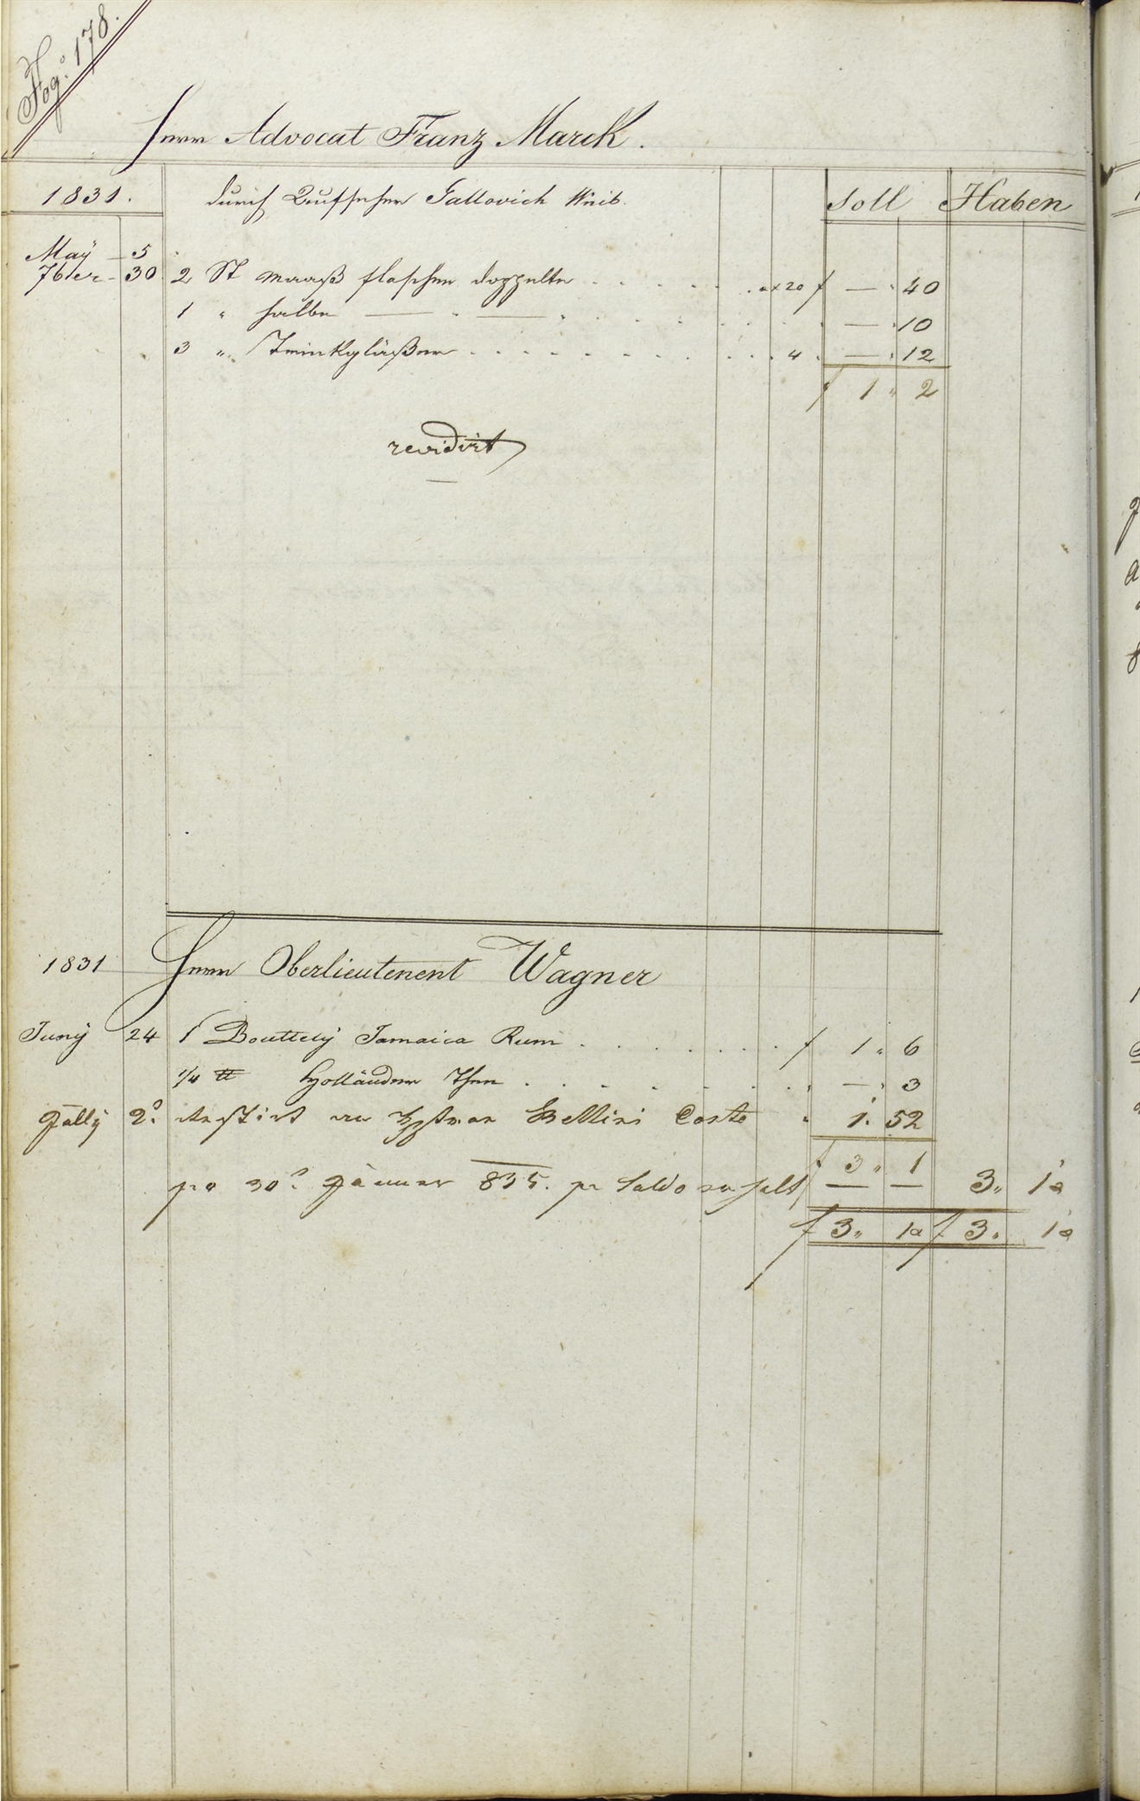 Fog: 178.
Herrn Advocat Franz Marck.
1831. durch Aufseher Gallovich Weib. Soll Haben
May 5
7ber 30 2 St maaß flaschen doppelte a x 20 f — 40
1 " halbe — " — — 10
3 " Trinkgläßer 4 — 12
f 1 " 2
revidirt
1831 Herrn Oberlieutenent Wagner
Juny 24 1 Bouttely Jamaica Rum f 1 " 6
1/4 ℔ Holländer Thee — " 3
July 2: Bellini Conto " 1 " 52
f 3 " 1
pr 30: Jänner 835. pr Saldo — — 3 " 1
f 3 " 1 f 3 " 1